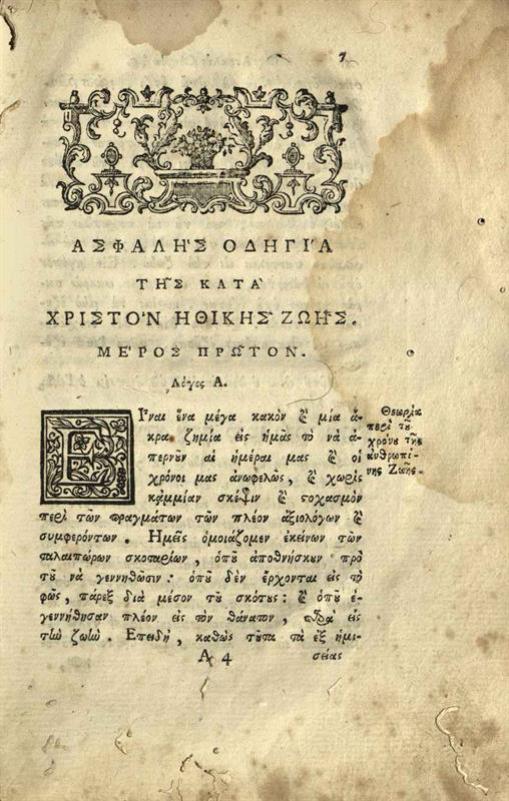 7
ΑΣΦΑΛΗ'Σ ΟΔΗΓΙ'Α
ΤΗ͂Σ ΚΑΤᾺ
ΧΡΙΣΤΟ'Ν ΗΘΙΚΗ͂Σ ΖΩΗ͂Σ.
ΜΕ'ΡΟΣ ΠΡΩ͂ΤΟΝ.
Λόγος Α.
ΕΙ῏ναι ἕνα μέγα κακὸν ϗ μία ἄ-
κρα ζημία εἰς ἡμᾶς τὸ νὰ ἀ-
περνοῦν αἱ ἡμέραι μας ϗ οἱ
χρόνοι μας ἀνωφελῶς, ϗ χωρὶς
κᾀμμίαν σκέψιν ϗ στοχασμὸν
περὶ τῶν πραγμάτων τῶν πλέον ἀξιολόγων ϗ
συμφερόντων. Ἡμεῖς ὁμοιάζομεν ἐκείνων τῶν
ταλαιπώρων σκοταρίων, ὁποῦ ἀποθνήσκουν πρὸ
τοῦ νὰ γεννηθῶσιν: ὁποῦ δὲν ἔρχονται εἰς τὸ
φῶς, πάρεξ διὰ μέσον τοῦ σκότους: ϗ ὁποῦ ἐ-
γεννήθησαν πλέον εἰς τὸν θάνατον, παρὰ εἰς
τὴν ζωήν. Ἐπειδὴ, καθὼς τοῦτα τὰ ἐξ ἡμι-
Α 4 σείας
Θεωρία
περὶ τοῦ
χρόνου τῆς
ἀνθρωπί-
νης Ζωῆς.